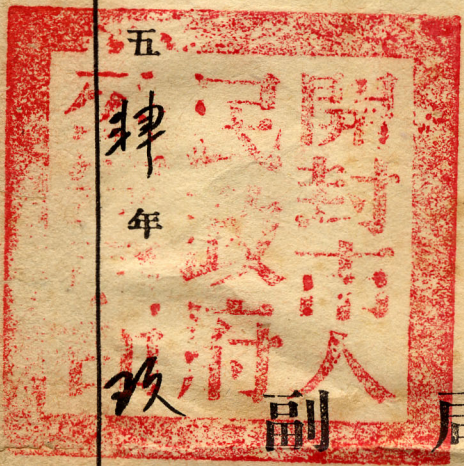 開封市人
民政府
副
五肆年玖